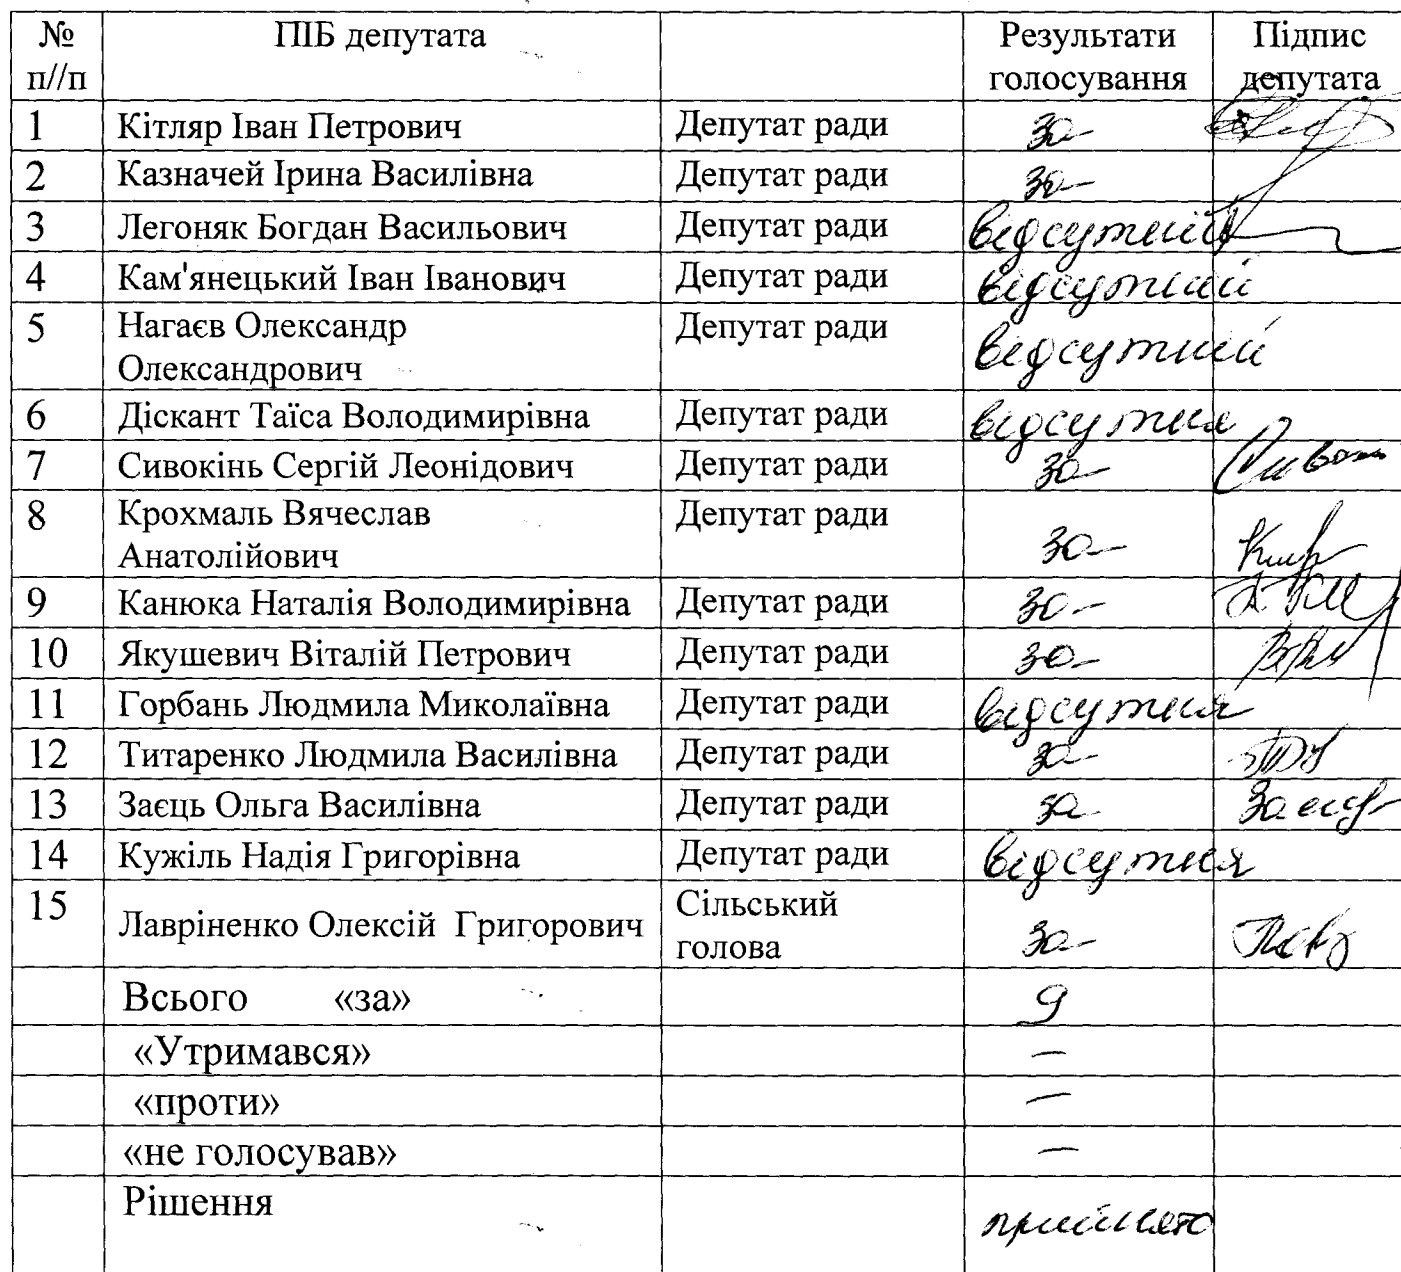 № ПІБ депутата Результати Підпис
п//п голосування депутата
1 Кітляр Іван Петрович Депутат ради за
2 Казначей Ірина Василівна Депутат ради за
3 Легоняк Богдан Васильович Депутат ради відсутній
4 Кам'янецький Іван Іванович Депутат ради відсутній
5 Нагаєв Олександр Депутат ради відсутній
Олександрович
6 Діскант Таїса Володимирівна Депутат ради відсутня
7 Сивокінь Сергій Леонідович Депутат ради за
8 Крохмаль Вячеслав Депутат ради
Анатолійович за
9 Канюка Наталія Володимирівна Депутат ради за
10 Якушевич Віталій Петрович Депутат ради за
11 Горбань Людмила Миколаївна Депутат ради відсутня
12 Титаренко Людмила Василівна Депутат ради за
13 Заєць Ольга Василівна Депутат ради за
14 Кужіль Надія Григорівна Депутат ради відсутня
15 Лавріненко Олексій Григорович Сільський
голова за
Всього «за» 9
«Утримався» —
«проти» —
«не голосував» —
Рішення прийнято